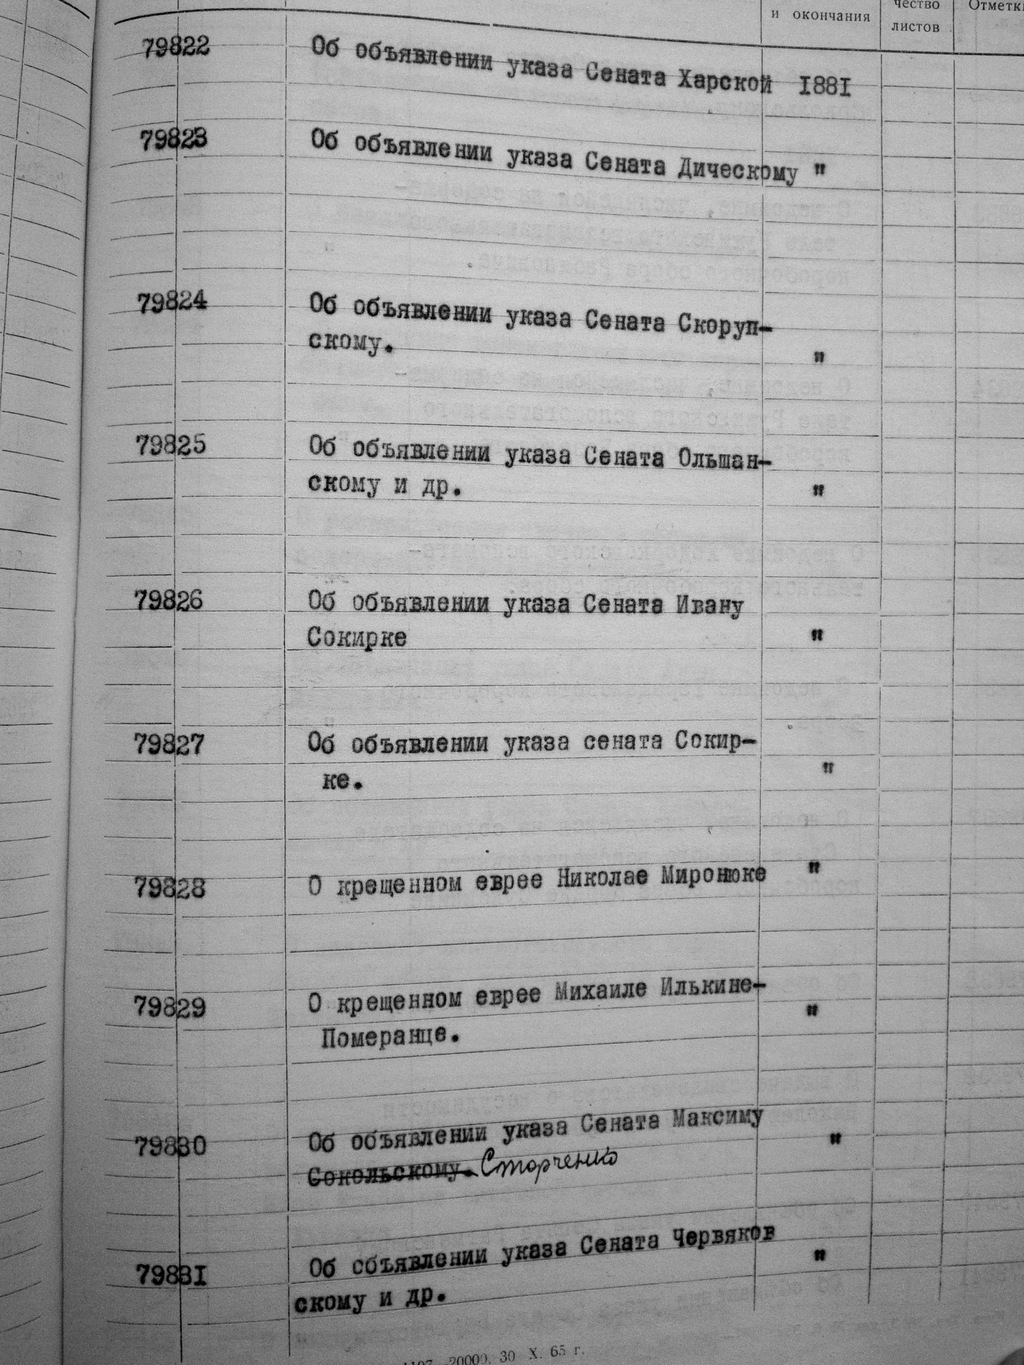 и окончания
чество
листов
Отметки
79822 Об объявлении указа Сената Харской 1881
79823 Об объявлении указа Сената Дическому "
79824 Об объявлении указа Сената Скоруп-
скому. "
79825 Об объявлении указа Сената Ольшан-
скому и др. "
79826 Об объявлении указа Сената Ивану
Сокирке "
79827 Об объявлении указа сената Сокир-
ке. "
79828 О крещенном еврее Николае Миронюке "
79829 О крещенном еврее Михаиле Илькине-
Померанце. "
79830 Об объявлении указа Сената Максиму "
Сокольскому. Сторченко
79831 Об объявлении указа Сената Червяков "
скому и др.
20000. 30 X. 65 г.